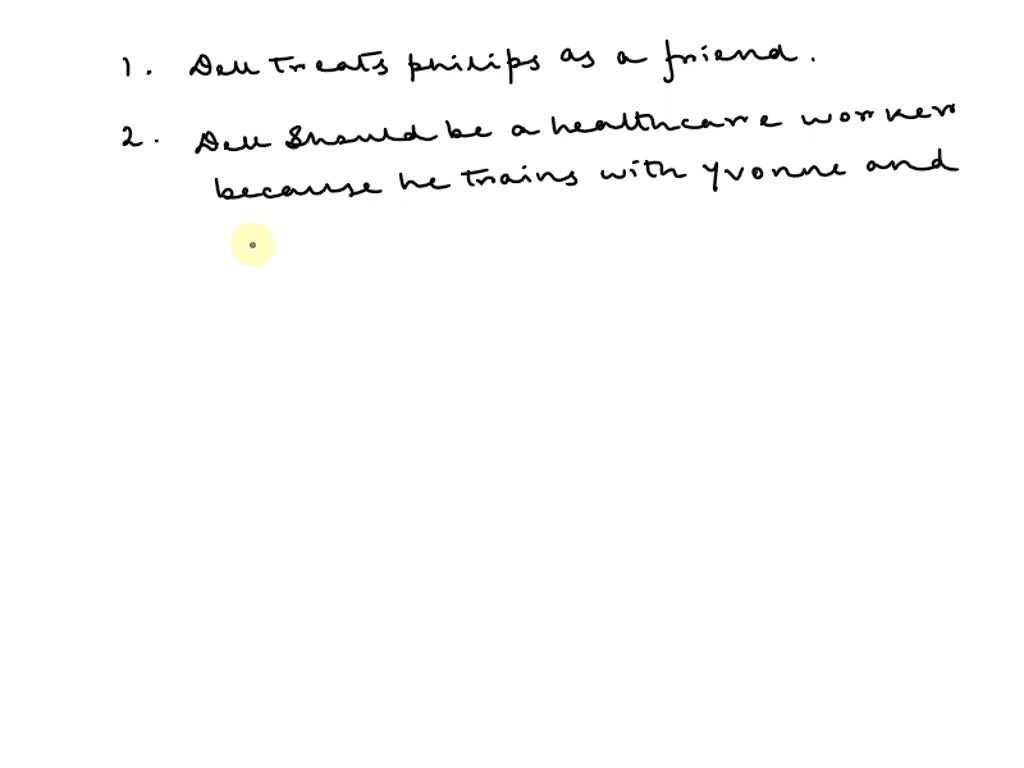 1. Dell treats philips as a friend.
2. Dell should be a healthcare worker
because he trains with yvonne and